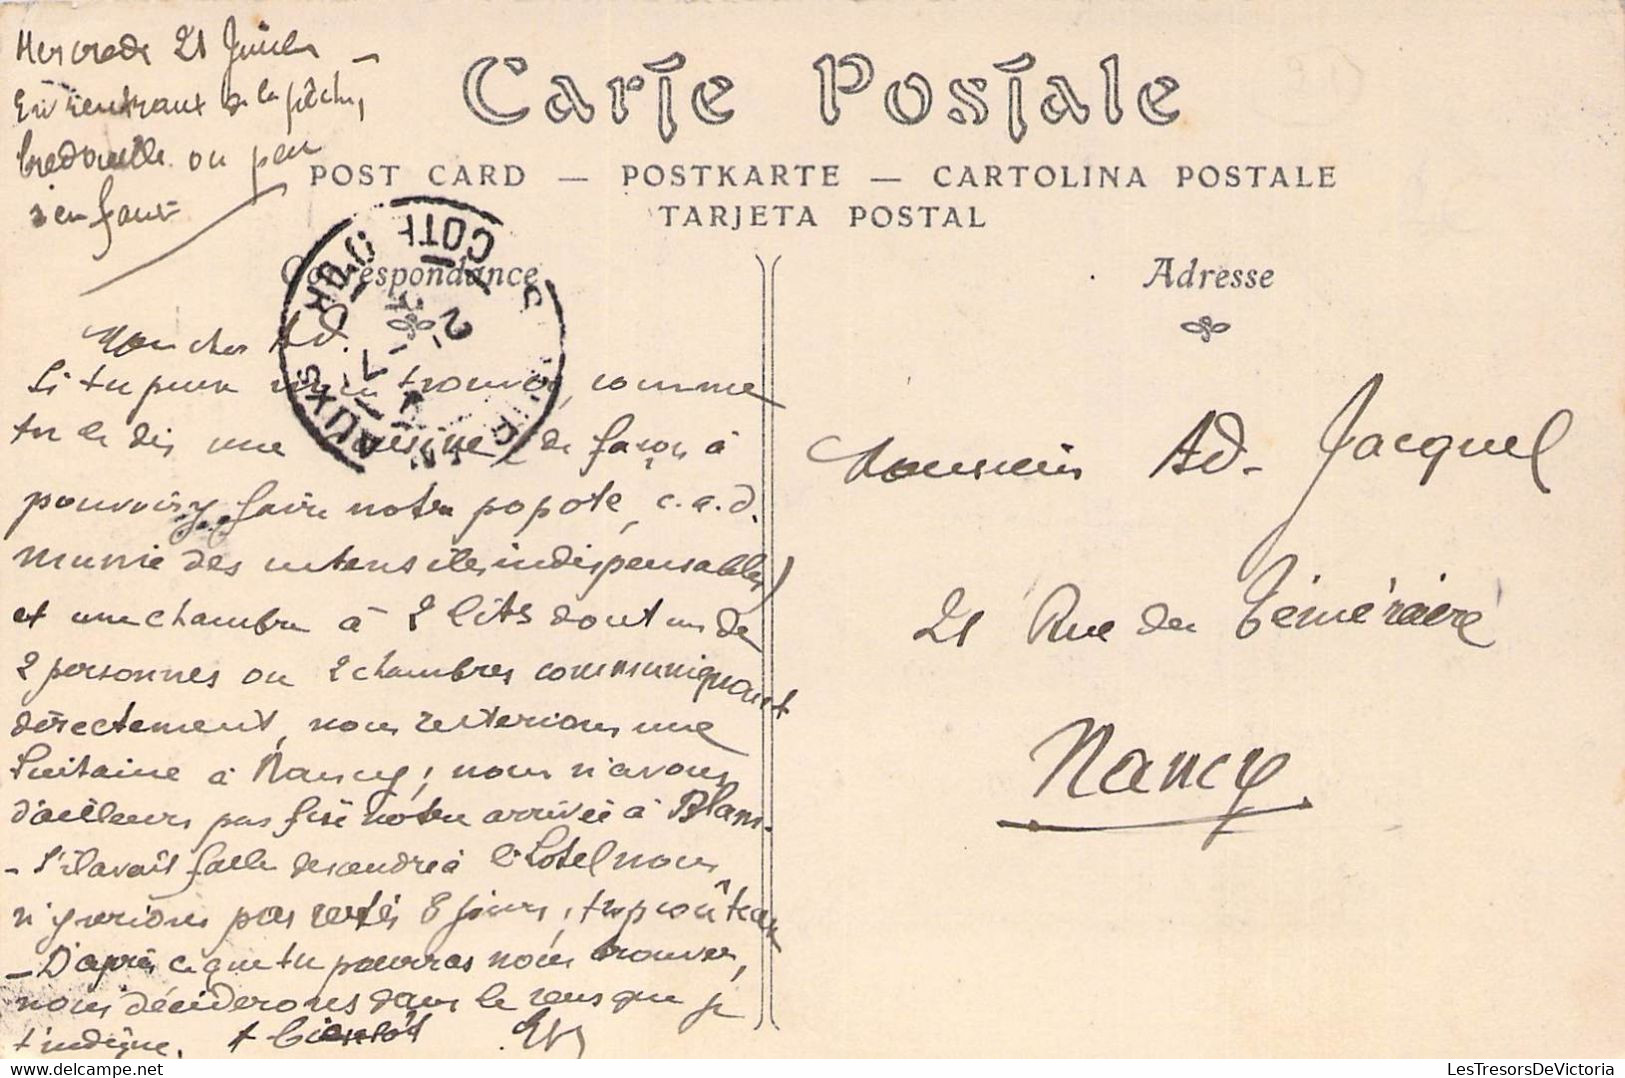 Mercredi 21 Juillet
En rentrant de la pêche,
bredouille ou peu
s'en faut
Carte Postale
POST CARD — POSTKARTE — CARTOLINA POSTALE
TARJETA POSTAL
Correspondance
Adresse
Mon cher Ad.
Si tu peux nous trouver, comme
tu le dis une cuisine (de façon à
pouvoir y faire notre popote, c.a.d.
munie des ustensiles indispensables)
et une chambre à 2 lits dont un de
2 personnes ou 2 chambres communiquant
directement, nous resterions une
huitaine à Nancy; nous n'avons
d'ailleurs pas fixé notre arrivée à Blam.
- S'il avait fallu descendre à l'hotel nous
n'y serions pas restés 8 jours, trop coûteux
- D'après ce que tu pourras nous trouver,
nous déciderons dans le sens que je
t'indique. A bientôt
Monsieur Ad. Jacquel
21 Rue du Téméraire
Nancy
COTE D'OR
LesTresorsDeVictoria